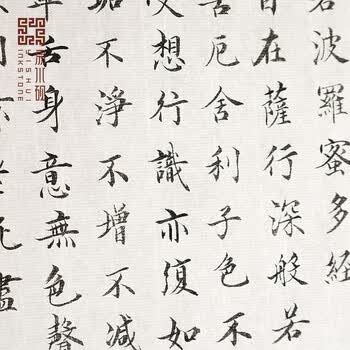 波羅蜜多經
在薩行深般若
厄舍利子色不
想行識亦復如
垢不淨不增不減
舌身意無色聲
盡
INKSTONE